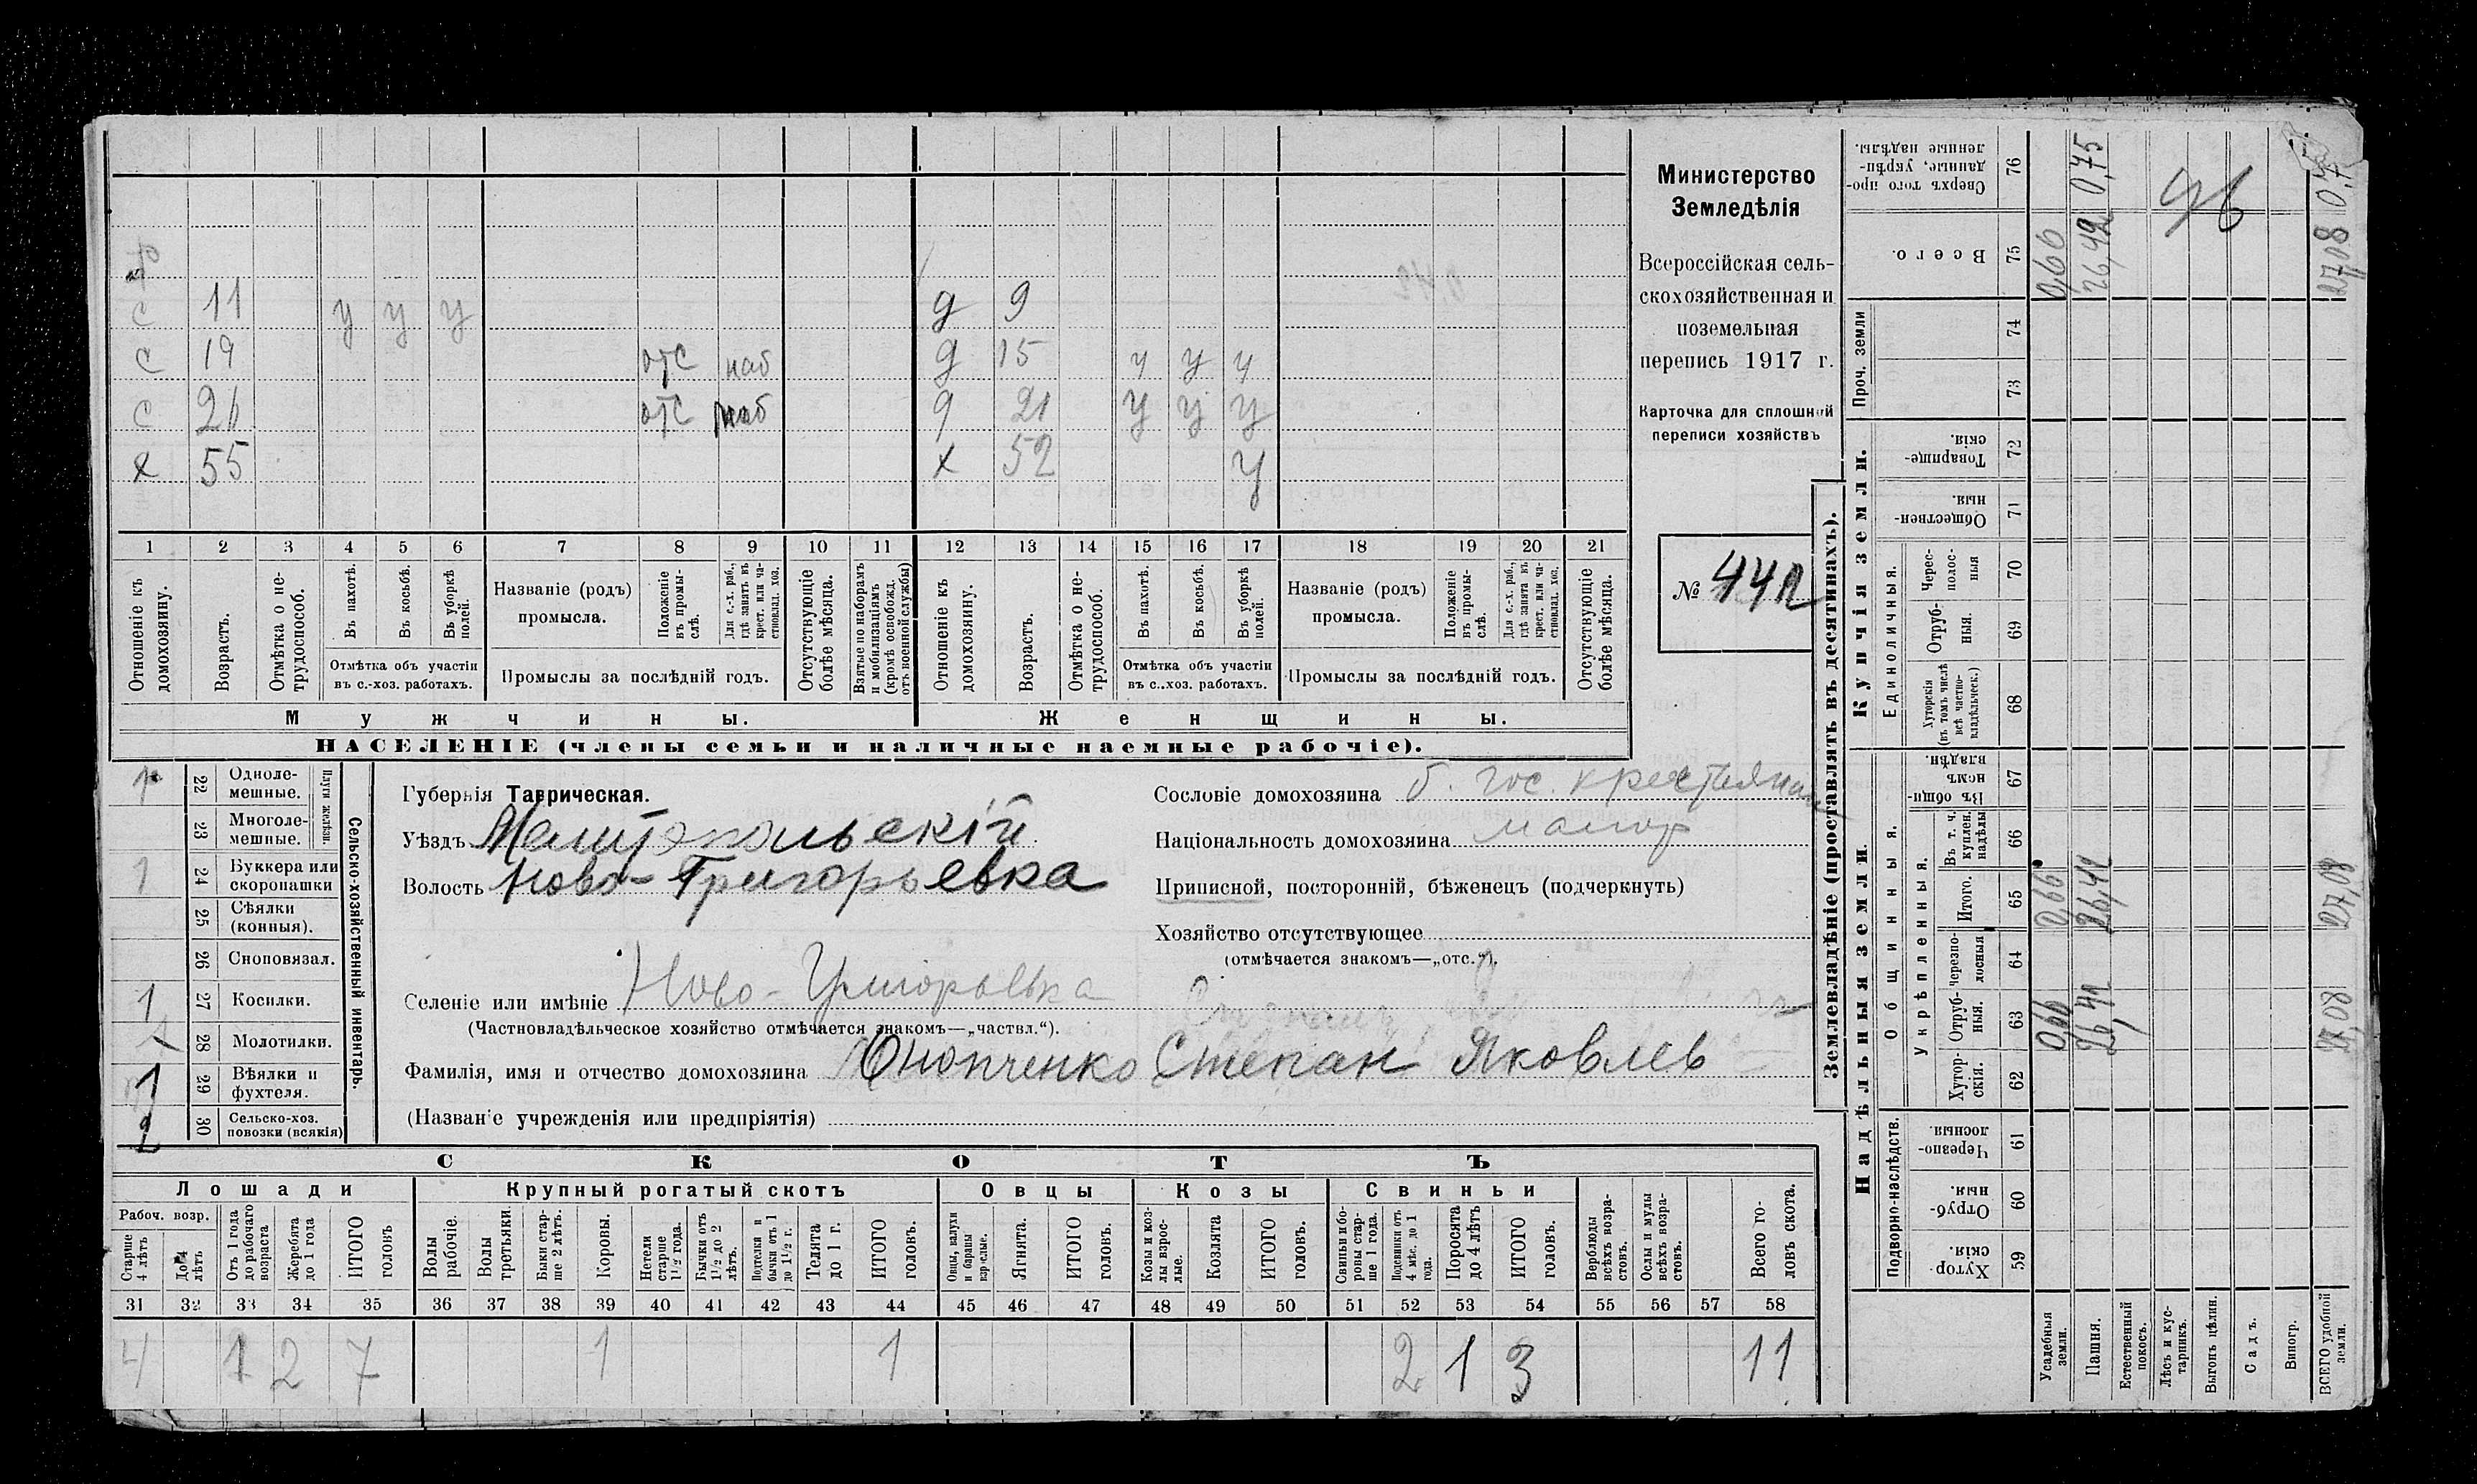 Министерство
Земледѣлія
Всероссійская сель-
скохозяйственная и
поземельная
перепись 1917 г.
Карточка для сплошной
переписи хозяйствъ
№ 442
с 11 у у у д 9
с 19 отс наб д 15 у у у
с 21 отс наб д 21 у у у
х 55 х 52 у
1 2 3 4 5 6 7 8 9 10 11 12 13 14 15 16 17 18 19 20 21
Отношеніе къ домохозяину.
Возрастъ.
Отмѣтка о не-трудоспособ.
Въ пахотѣ.
Въ косьбѣ.
Въ уборкѣ полей.
Отмѣтка объ участіи
въ с.-хоз. работахъ.
Названіе (родъ)
промысла.
Положеніе въ промы-слѣ.
Для с.-х. раб., гдѣ занятъ въ крест. или ча-стновлад. хоз.
Промыслы за послѣдній годъ.
Отсутствующіе болѣе мѣсяца.
Взятые по наборамъ и мобилизаціямъ (кромѣ освобожд. отъ военной службы)
Отношеніе къ домохозяину.
Возрастъ.
Отмѣтка о не-трудоспособ.
Въ пахотѣ.
Въ косьбѣ.
Въ уборкѣ полей.
Отмѣтка объ участіи
въ с..хоз. работахъ.
Названіе (родъ)
промысла.
Положеніе въ промы-слѣ.
Для с.-х. раб., гдѣ занята въ крест. или ча-стновлад. хоз.
Промыслы за послѣдній годъ.
Отсутствующіе болѣе мѣсяца.
Мужчины. Женщины.
НАСЕЛЕНІЕ (члены семьи и наличные наемные рабочіе).
Сельско-хозяйственный инвентарь.
Плуги желѣзн.
22 Одноле-мешные.
23 Многоле-мешные.
1 24 Буккера или скоропашки
25 Сѣялки (конныя).
26 Сноповязал.
1 27 Косилки.
28 Молотилки.
1 29 Вѣялки и фухтеля.
2 30 Сельско-хоз. повозки (всякія)
Губернія Таврическая.
Уѣздъ Мелитопольскій
Волость Ново-Григорьевка
Селеніе или имѣніе Ново-Григорьевка
(Частновладѣльческое хозяйство отмѣчается знакомъ—„частвл.“).
Фамилія, имя и отчество домохозяина Онопченко Степан Яковлев
(Названіе учрежденія или предпріятія)
Сословіе домохозяина б. гос. крестьянин
Національность домохозяина малор
Приписной, посторонній, бѣженецъ (подчеркнуть)
Хозяйство отсутствующее
(отмѣчается знакомъ—„отс.“).
СКОТЪ
Лошади Крупный рогатый скотъ Овцы Козы Свиньи
Рабоч. возр.
Старше 4 лѣтъ
До 4 лѣтъ
Отъ 1 года до рабочаго возраста
Жеребята до 1 года
ИТОГО головъ
Волы рабочіе.
Волы третьяки.
Быки стар-ше 2 лѣтъ.
Коровы.
Нетели старше 1½ года.
Бычки отъ 1½ до 2 лѣтъ.
Подтелки и бычки отъ 1 до 1½ г.
Телята до 1 г.
ИТОГО головъ.
Овцы, валухи и бараны взрослые.
Ягнята.
ИТОГО головъ.
Козы и коз-лы взрос-лые.
Козлята
ИТОГО головъ.
Свиньи и бо-ровы стар-ше 1 года.
Подсвинки отъ 4 мѣс. до 1 года.
Поросята до 4 лѣтъ
ИТОГО головъ.
Верблюды всѣхъ возра-стовъ.
Ослы и мулы всѣхъ возра-стовъ.
Всего го-ловъ скота.
31 32 33 34 35 36 37 38 39 40 41 42 43 44 45 46 47 48 49 50 51 52 53 54 55 56 57 58
4 1 2 7 1 1 2 1 3 11
Землевладѣніе (проставлять въ десятинахъ).
Купчія земли.
Надѣльныя земли.
Сверхъ того про-данные, укрѣп-ленные надѣлы. 76 0,75 0,7
Всего. 75 0,66 26,42 27,08
Проч. земли 74
73
Товарище-скія. 72
Обществен-ныя. 71
Единоличныя.
Черес-полос-ныя 70
Отруб-ныя. 69
Хуторскія (въ томъ числѣ всѣ частно-владѣльческ.) 68
Общинныя.
Въ общин-номъ владѣн. 67
Укрѣпленныя.
Въ т. ч. куплен. надѣлы 66
Итого. 65 0,66 26,42 27,08
Черезпо-лосныя 64
Отруб-ныя. 63 0,66 26,42 27,08
Хутор-скія. 62
Подворно-наслѣдств.
Черезпо-лосныя. 61
Отруб-ныя. 60
Хутор-скія. 59
Усадебныя земли.
Пашня.
Естественный покосъ.
Лѣсъ и кус-тарникъ.
Выгонъ цѣлин.
Садъ.
Виногр.
ВСЕГО удобной земли.